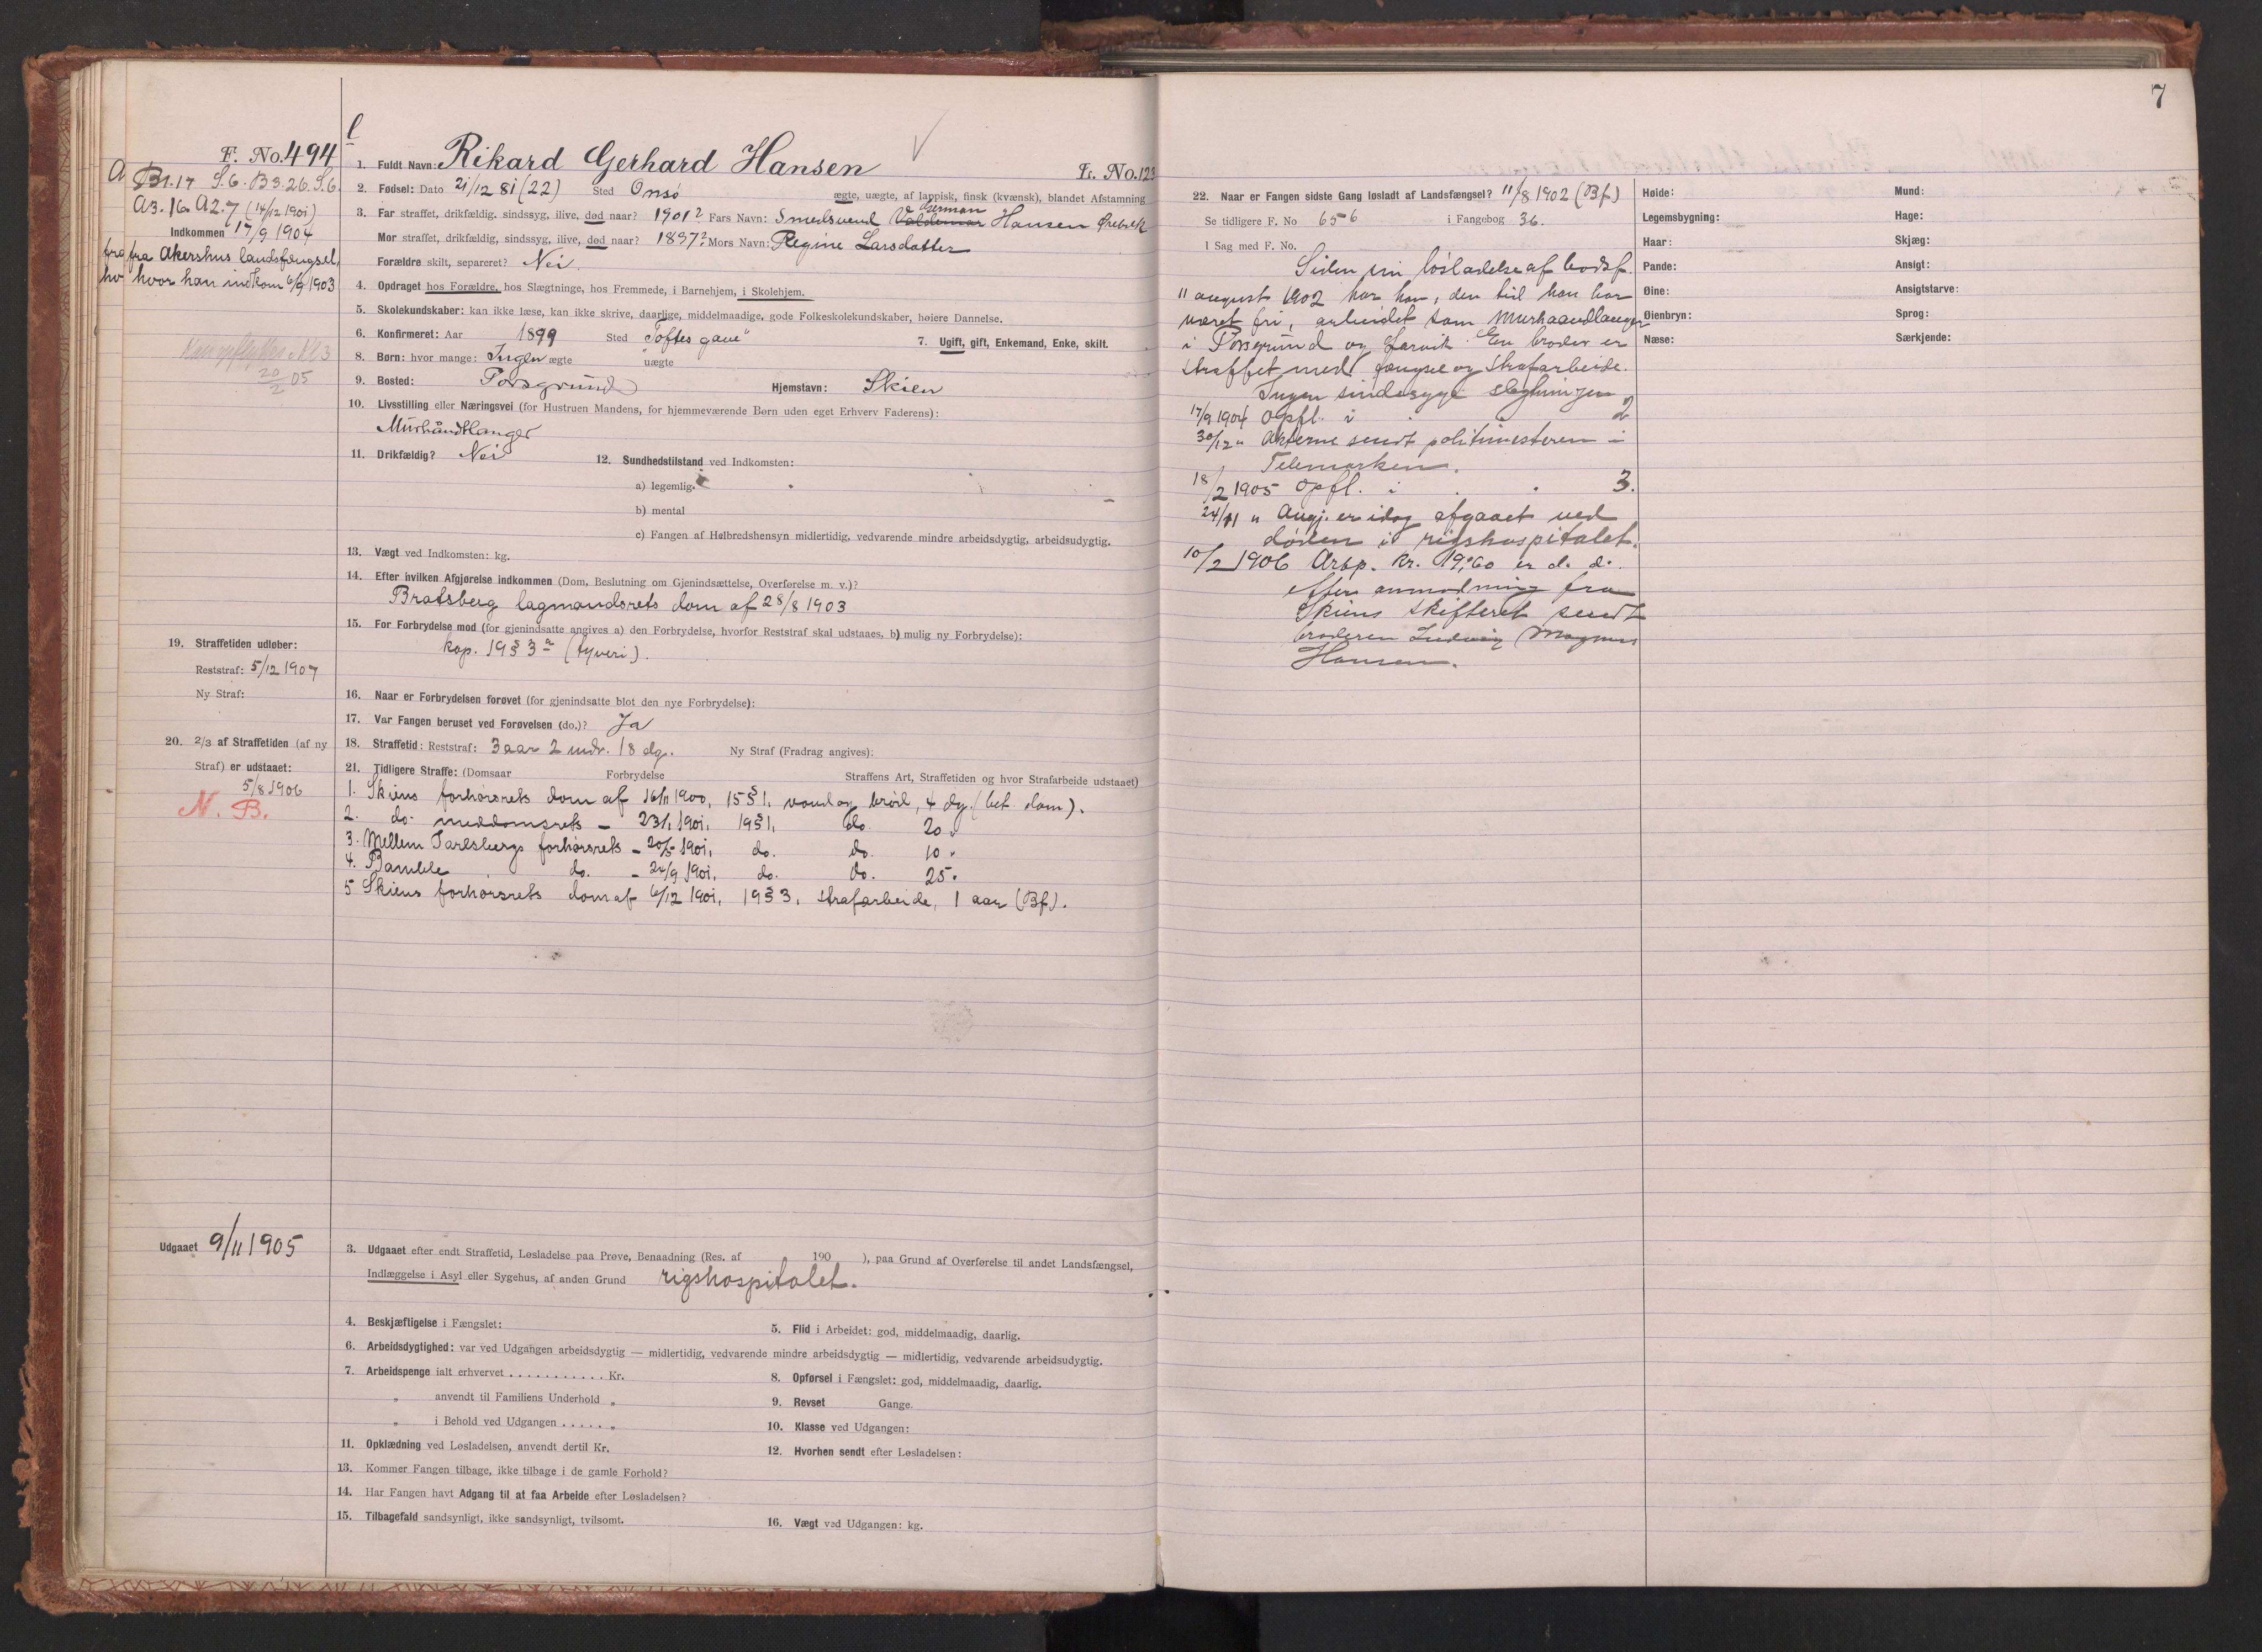 7
F. No. 494
B1.17 S.6. B3.26. S.6.
A3.16 A2.7 (14/12 1901)
Indkommen 17/9 1904
fra Akershus landsfængsel,
hvor han indkom 6/9 1903
20/2 05
19. Straffetiden udløber:
Reststraf: 5/12 1907
Ny Straf:
20. 2/3 af Straffetiden (af ny
Straf) er udstaaet:
5/8 1906
N. B.
Udgaaet 9/11 1905
1. Fuldt Navn: Rikard Gerhard Hansen
Fr. No. 123
2. Fødsel: Dato 21/12 81 (22) Sted Onsø ægte, uægte, af lappisk, finsk (kvænsk), blandet Afstamning
3. Far straffet, drikfældig, sindssyg, ilive, død naar? 1901? Fars Navn: Smedsvend Valdemar Hansen Ørebæk
Mor straffet, drikfældig, sindssyg, ilive, død naar? 1897? Mors Navn: Regine Larsdatter
Forældre skilt, separeret? Nei.
4. Opdraget hos Forældre, hos Slægtninge, hos Fremmede, i Barnehjem, i Skolehjem.
5. Skolekundskaber: kan ikke læse, kan ikke skrive, daarlige, middelmaadige, gode Folkeskolekundskaber, høiere Dannelse.
6. Konfirmeret: Aar 1899 Sted "Toftes gave" 7. Ugift, gift, Enkemand, Enke, skilt.
8. Børn: hvor mange: Ingen ægte " uægte
9. Bosted: Porsgrund Hjemstavn: Skien
10. Livsstilling eller Næringsvei (for Hustruen Mandens, for hjemmeværende Børn uden eget Erhverv Faderens):
Murhåndtlanger
11. Drikfældig? Nei 12. Sundhedstilstand ved Indkomsten:
a) legemlig.
b) mental
c) Fangen af Helbredshensyn midlertidig, vedvarende mindre arbeidsdygtig, arbeidsudygtig.
13. Vægt ved Indkomsten: kg.
14. Efter hvilken Afgjørelse indkommen (Dom, Beslutning om Gjenindsættelse, Overførelse m. v.)?
Bratsberg lagmandsrets dom af 28/8 1903
15. For Forbrydelse mod (for gjenindsatte angives a) den Forbrydelse, hvorfor Reststraf skal udstaaes, b) mulig ny Forbrydelse):
kap. 19 § 3 a (tyveri).
16. Naar er Forbrydelsen forøvet (for gjenindsatte blot den nye Forbrydelse):
17. Var Fangen beruset ved Forøvelsen (do.)? Ja
18. Straffetid: Reststraf: 3 aar 2 mdr. 18 dg. Ny Straf (Fradrag angives):
21. Tidligere Straffe: (Domsaar Forbrydelse Straffens Art, Straffetiden og hvor Strafarbeide udstaaet)
1. Skiens forhørsrets dom af 16/11 1900, 15 § 1, vand og brød, 4 dg. (bet. dom).
2. do. meddomsrets - 23/1 1901, 19 § 1, do. 20 "
3. Mellem Jarlsbergs forhørsrets - 20/5 1901, do. do. 10 "
4. Bamble do. - 24/9 1901, do. do. 25 "
5 Skiens forhørsrets dom af 6/12 1901, 19 § 3, strafarbeide, 1 aar (Bf).
3. Udgaaet efter endt Straffetid, Løsladelse paa Prøve, Benaadning (Res. af 190 ), paa Grund af Overførelse til andet Landsfængsel,
Indlæggelse i Asyl eller Sygehus, af anden Grund rigshospitalet.
4. Beskjæftigelse i Fængslet: 5. Flid i Arbeidet: god, middelmaadig, daarlig.
6. Arbeidsdygtighed: var ved Udgangen arbeidsdygtig — midlertidig, vedvarende mindre arbeidsdygtig — midlertidig, vedvarende arbeidsudygtig.
7. Arbeidspenge ialt erhvervet . . . . . . . . . . . Kr. 8. Opførsel i Fængslet: god, middelmaadig, daarlig.
„ anvendt til Familiens Underhold „ 9. Revset Gange.
„ i Behold ved Udgangen . . . . . „ 10. Klasse ved Udgangen:
11. Opklædning ved Løsladelsen, anvendt dertil Kr. 12. Hvorhen sendt efter Løsladelsen:
13. Kommer Fangen tilbage, ikke tilbage i de gamle Forhold?
14. Har Fangen havt Adgang til at faa Arbeide efter Løsladelsen?
15. Tilbagefald sandsynligt, ikke sandsynligt, tvilsomt. 16. Vægt ved Udgangen: kg.
22. Naar er Fangen sidste Gang løsladt af Landsfængsel? 11/8 1902 (Bf)
Se tidligere F. No 656 i Fangebog 36.
I Sag med F. No.
Siden sin løsladelse af bodsf.
11 august 1902 har han, den tid han har
været fri, arbeidet som murhaandlanger
i Porsgrund og Larvik. En broder er
straffet med fængsel og strafarbeide.
Ingen sindssyge slægtninger
17/9 1904 Opfl. i 2
30/12 " Akterne sendt politimesteren i
Telemarken.
18/2 1905 Opfl. i 3.
24/11 " Angj. er idag afgaaet ved
døden i rigshospitalet.
10/2 1906 Arbp. kr. 19,60 er d. d.
efter anmodning fra
Skiens skifteret sendt
broderen Ludvig Magnus
Hansen.
Høide:
Legemsbygning:
Haar:
Pande:
Øine:
Øienbryn:
Næse:
Mund:
Hage:
Skjæg:
Ansigt:
Ansigtstarve:
Sprog:
Særkjende: